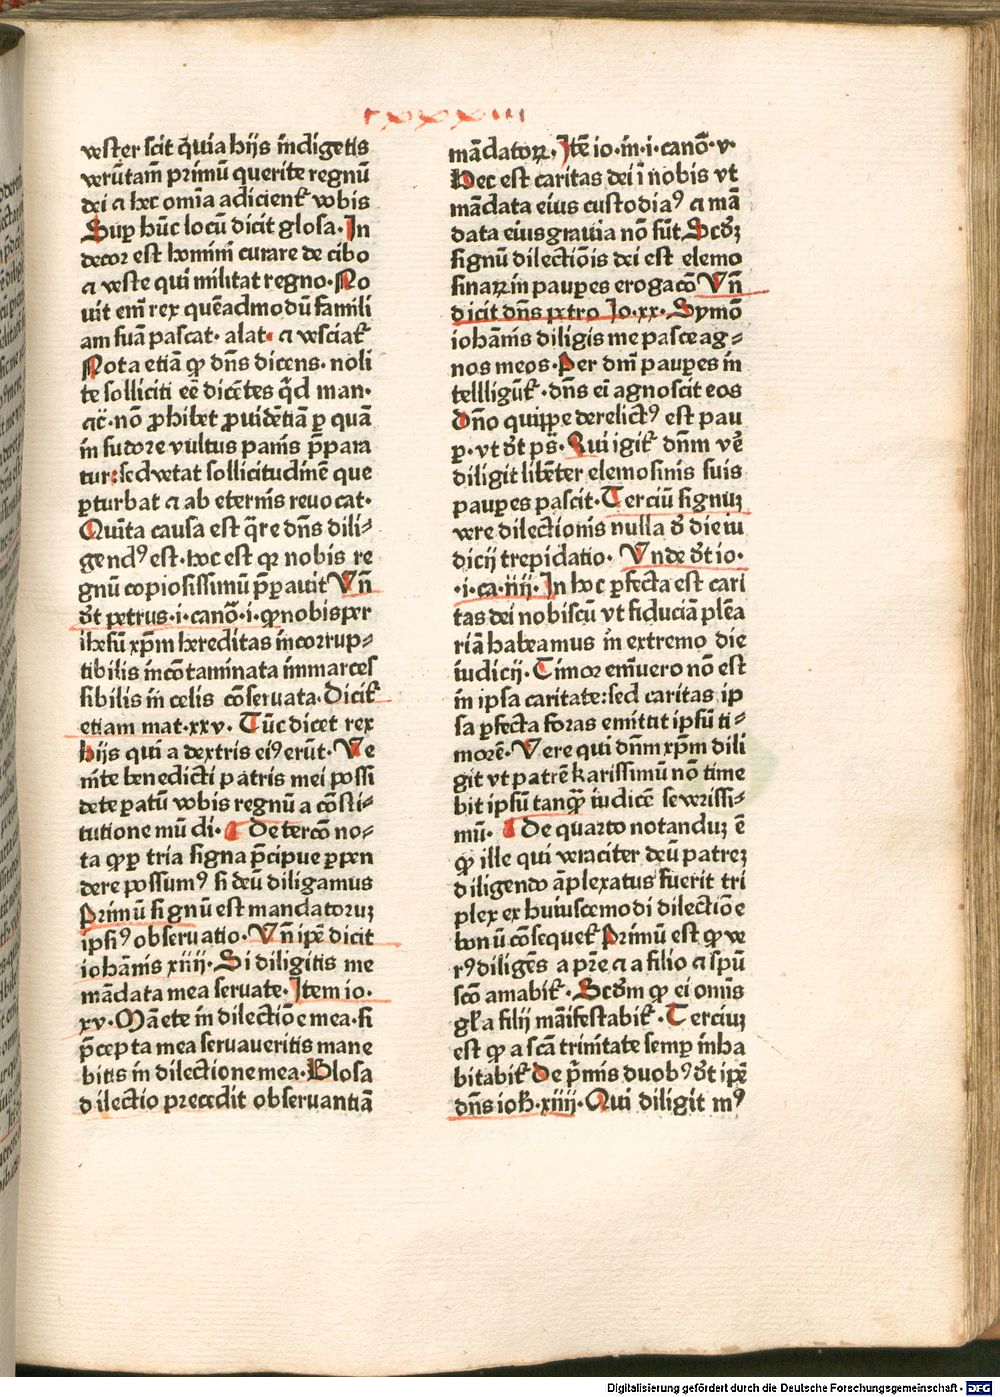 rxxxiii
vester scit q̄uia hijs īndigetis
verūtam̄ primū querite regnū
dei ⁊ hec om̄ia adicient᷒ vobis
Sup̱ hūc locū dicit glosa. In
decor est homini curare de cibo
⁊ veste qui militat regno. No
uit em̄ rex quēadmodū famili
am suā pascat. alat. ⁊ vesciat᷒
Nota etiā ꝙ dn̄s dicens. noli
te solliciti eē dicētes q̄d man.
⁊c̄. nō ꝓhibet ꝓuidētiā ꝑ quā
in sudore vultus panis p̄para
tur: sed vetat sollicitudinē que
ꝑturbat ⁊ ab eternis reuocat.
Quīta causa est q̄re dn̄s dili-
gendꝰ est. hoc est qꝛ nobis re
gnū copiosissimū p̄ꝑauit Vn̄
d̄t petrus. i. canō. i. ꝙ nobis per
ihesū xp̄m hereditas incorrup-
tibilis incōtaminata immarces
sibilis in celis cōseruata. Dicit᷒
etiam mat. xxv. Tūc dicet rex
hijs qui a dextris eiꝰ erūt. Ve
nite benedicti patris mei possi
dete patū vobis regnū a cōsti-
tutione mūdi. De tercō no-
ta ꝙ ꝑ tria signa p̄cipue ꝑpen
dere possumꝰ si deū diligamus
Primū signū est mandatoruꝫ
ipsiꝰ obseruatio. Vn̄ ipē dicit
iohānis xiiij. Si diligitis me
mādata mea seruate. Item io.
xv. Māete in dilectiōe mea. si
p̄cepta mea seruaueritis mane
bitis in dilectione mea. Glosa
dilectio precedit obseruantiā
mādatoꝝ. Itē io. in. i. canō. v.
Hec est caritas dei ī nobis vt
mādata eius custodiaꝰ ⁊ mā
data eius grauia nō sūt. Scd̄ꝫ
signū dilectiōis dei est elemo
sinaꝝ in pauꝑes erogacō Vn̄
dicit dn̄s petro Io. xx. Symō
iohānis diligis me pasce ag-
nos meos. Per dn̄i pauꝑes in
telligūt᷒. dn̄s ei agnoscit eos
Dn̄o quippe derelictꝰ est pau
ꝑ. vt d̄t pṡ. Qui igit᷒ dn̄m vē
diligit libēter elemosinis suis
pauꝑes pascit. Terciū signuꝫ
vere dilectionis nulla d̄ die iu
dicij trepidatio. Vnde d̄t io.
.i. ca. iiij. In hoc ꝑfecta est cari
tas dei nobiscū vt fiduciā plēa
riā habeamus in extremo die
iudicij. Timor em̄ vero nō est
in ipsa caritate: sed caritas ip
sa ꝑfecta foras emittit ipsū ti-
morē. Vere qui dn̄m xp̄m dili
git vt patrē karissimū nō time
bit ipsū tanqꝫ iudicē seuerissi-
mū. De quarto notanduꝫ ē
ꝙ ille qui veraciter deū patreꝫ
diligendo āplexatus fuerit tri
plex ex huiuscemodi dilectiōe
bonū cōsequet᷒ Primū est ꝙ ve
rꝰ diligēs a pr̄e ⁊ a filio ⁊ spū
scō amabit᷒. Scd̄m ꝙ ei om̄is
gl̄a filij māifestabit᷒. Terciuꝫ
est ꝙ a scā trinitate semꝑ inha
bitabit᷒ De p̄mis duobꝰ d̄t ipē
dn̄s ioh̄. xiiij. Qui diligit mꝰ
Digitalisierung gefördert durch die Deutsche Forschungsgemeinschaft - DFG